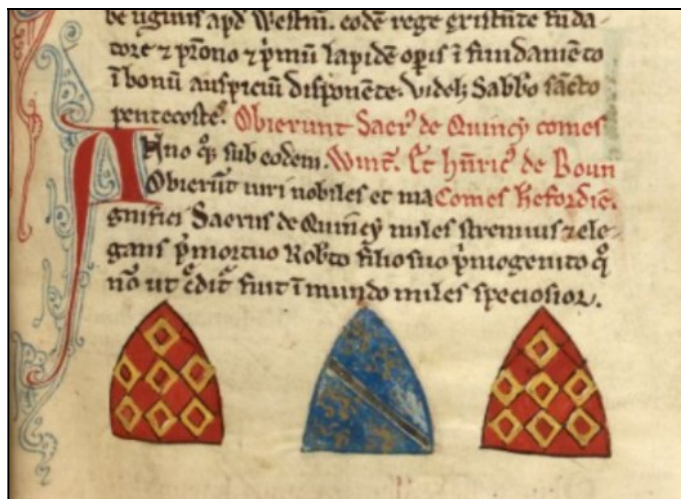 be uginis apd Westm̄. eodē rege existēte funda-
tore ⁊ pr̄ono ⁊ p̄mū lapidē op̄is ī fundamēto
ī bonū auspiciū disponēte. videlꝫ Sabbo sancto
pentecostes. Obierunt Saer' de Quincy comes
Anno qꝫ sub eodem. Wint̄. Et hn̄ric' de Boun
Obierūt uiri nobiles et ma Comes hefordie.
gnifici Saerus de Quincy miles strenuus ⁊ ele-
gans p̄mortuo Rob̄to filio suo p̄mogenito qͦ
nō ut c̄dit' fuit ī mundo miles speciosior.